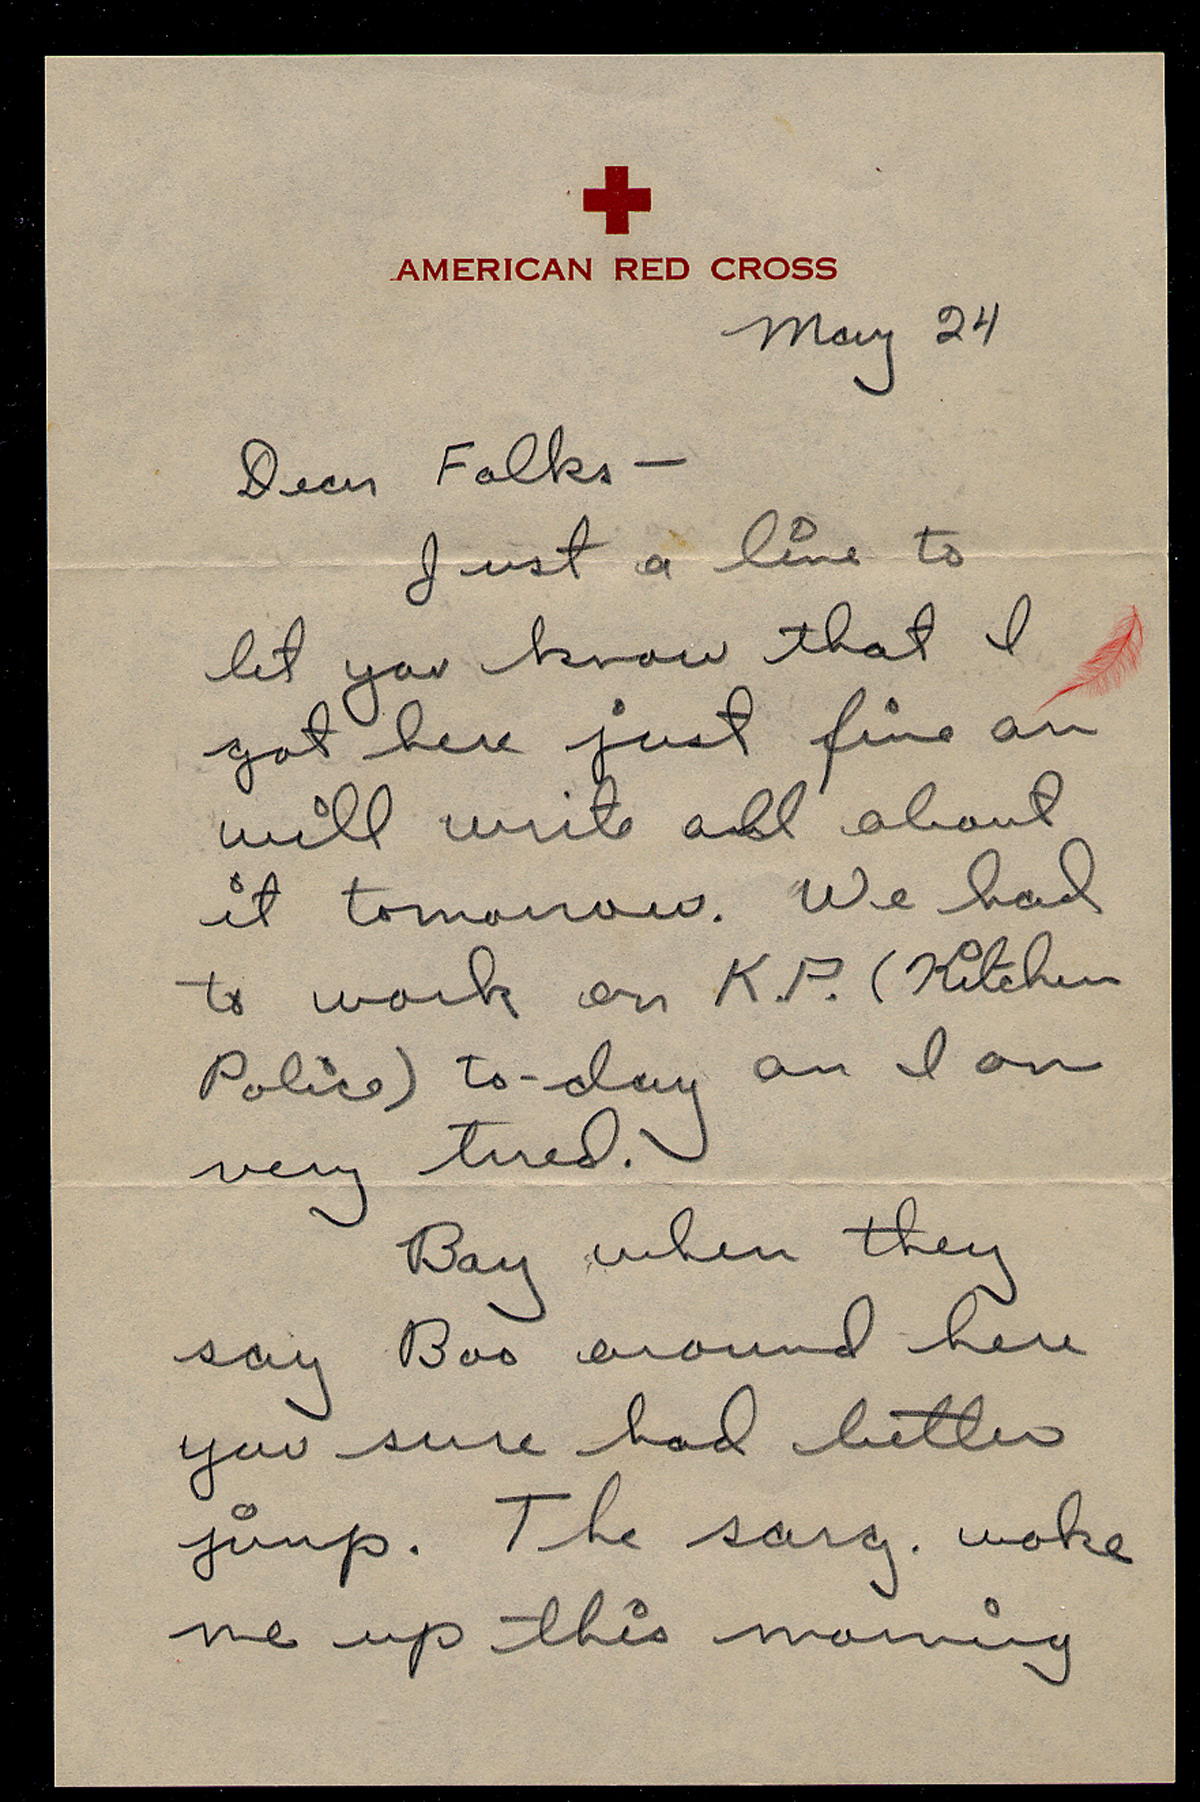 AMERICAN RED CROSS
May 24
Dear Folks—
Just a line to
let you know that I
got here just fine an
will write all about
it tomorrow. We had
to work on K.P. (Kitchen
Police) to-day an I am
very tired.
Boy when they
say Boo around here
you sure had better
jump. The sarg. woke
me up this morning